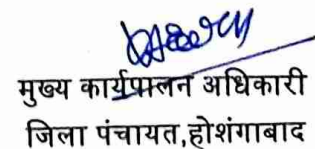 मुख्य कार्यपालन अधिकारी
जिला पंचायत,होशंगाबाद